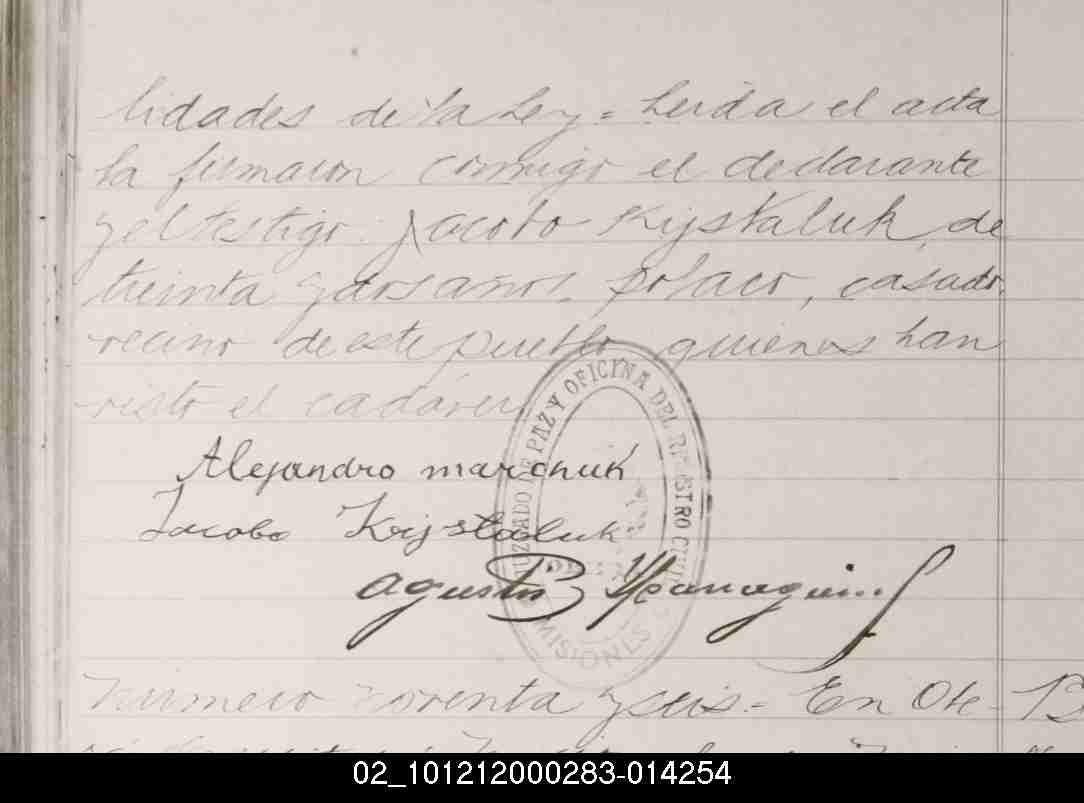 lidades de la Ley = Leida el acta
la firmaron conmigo el declarante
y el testigo Jacobo Krystaluk, de
treinta y dos años, polaco, casado,
vecino de este pueblo quienes han
visto el cadáver
Alejandro marchuk
Jacobo Krystaluk
Agustin B
JUZGADO DE PAZ Y OFICINA DEL REGISTRO CIVIL
MISIONES
Número noventa y seis = En Ote
02_101212000283-014254